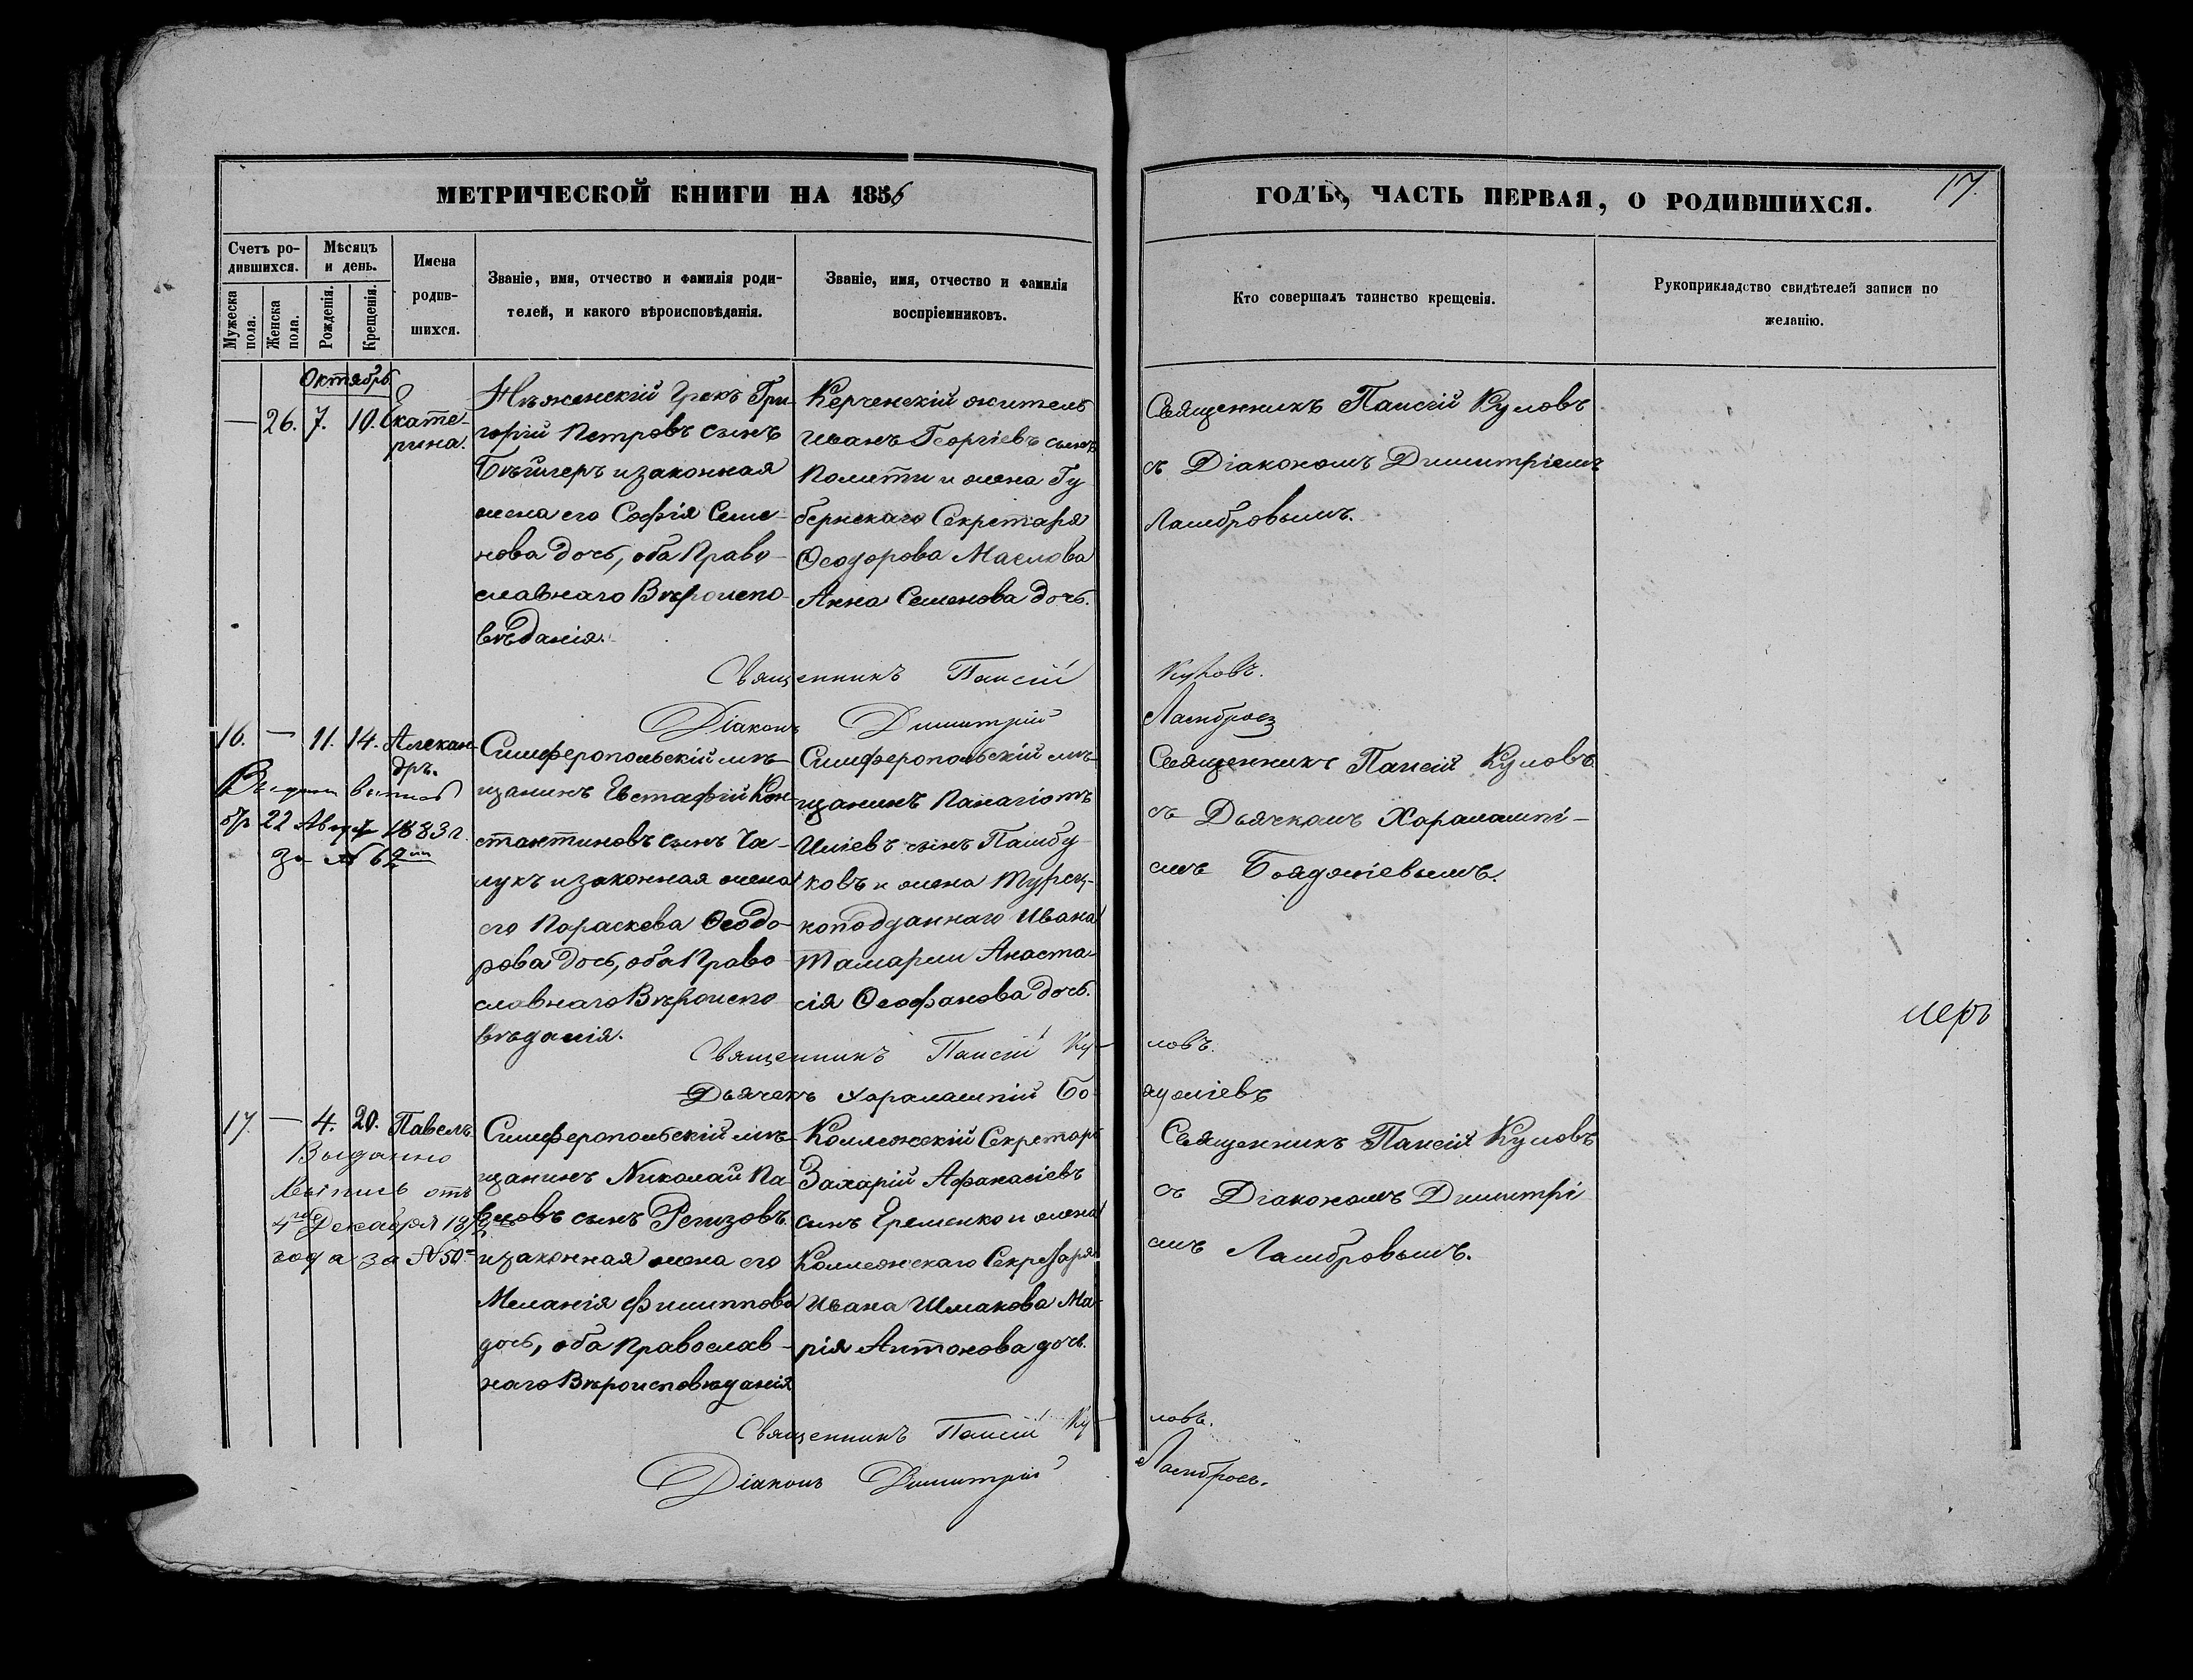 МЕТРИЧЕСКОЙ КНИГИ НА 1856
ГОДЪ, ЧАСТЬ ПЕРВАЯ, О РОДИВШИХСЯ.
17.
Счетъ ро-
дившихся.
Мужеска пола.
Женска пола.
Мѣсяцъ
и день.
Рожденія.
Крещенія.
Имена
родив-
шихся.
Званіе, имя, отчество и фамилія роди-
телей, и какого вѣроисповѣданія.
Званіе, имя, отчество и фамилія
воспріемниковъ.
Кто совершалъ таинство крещенія.
Рукоприкладство свидѣтелей записи по
желанію.
Октябрь
— 26. 7. 10. Екате-
рина.
Нѣженскій Грекъ Гри-
горій Петровъ сынъ
изаконная
жена его Софія Семе-
нова дочь, оба Право-
славнаго Вѣроиспо-
вѣданія.
Керченскій житель
Иванъ Георгіевъ сынъ
Политти и жена Гу
бернскаго Секретаря
Ѳеодорова Маслова
Анна Семенова дочь.
Священникъ Паисій Куловъ
съ Діакономъ Димитріемъ
Ламбровымъ.
Священникъ Паисій Куловъ.
Діаконъ Димитрій Ламбросъ
16. — 11. 14. Алексан-
дръ.
Выдана выпись
отъ 22 Август 1883 г.
за № 69
Симферопольскій мѣ-
щанинъ Евстафій Кон-
стантиновъ сынъ Ча-
лукъ изаконная жена
его Параскева Ѳеодо-
рова дочь, оба Право-
славнаго Вѣроиспо-
вѣданія.
Симферопольскій мѣ-
щанинъ Панагіотъ
Иліевъ сынъ Памбу-
ковъ и жена Турец-
коподданнаго Ивана
Тамарли Анаста-
сія Ѳеофанова дочь.
Священникъ Паисій Куловъ
съ Дьячкомъ Харалампі-
емъ Бояджіевымъ.
меръ
Священникъ Паисій Ку-
ловъ.
Дьячекъ Харалампій Бо-
яджіевъ
17. — 4. 20. Павелъ
Выданно
выпись отъ
4го Декабря 187
года за № 50
Симферопольскій мѣ-
щанинъ Николай Па-
вловъ сынъ Регизовъ
изаконная жена его
Меланія Филиппова
дочь, оба Православ-
наго Вѣроисповѣданія
Коллежскій Секретарь
Захарій Афанасіевъ
сынъ Еременко и жена
Коллежскаго Секретаря
Ивана Шмакова Ма-
рія Антонова дочь.
Священникъ Паисій Куловъ
съ Діакономъ Димитрі
емъ Ламбровымъ.
Священникъ Паисій Ку-
ловъ.
Діаконъ Димитрій Ламбросъ.